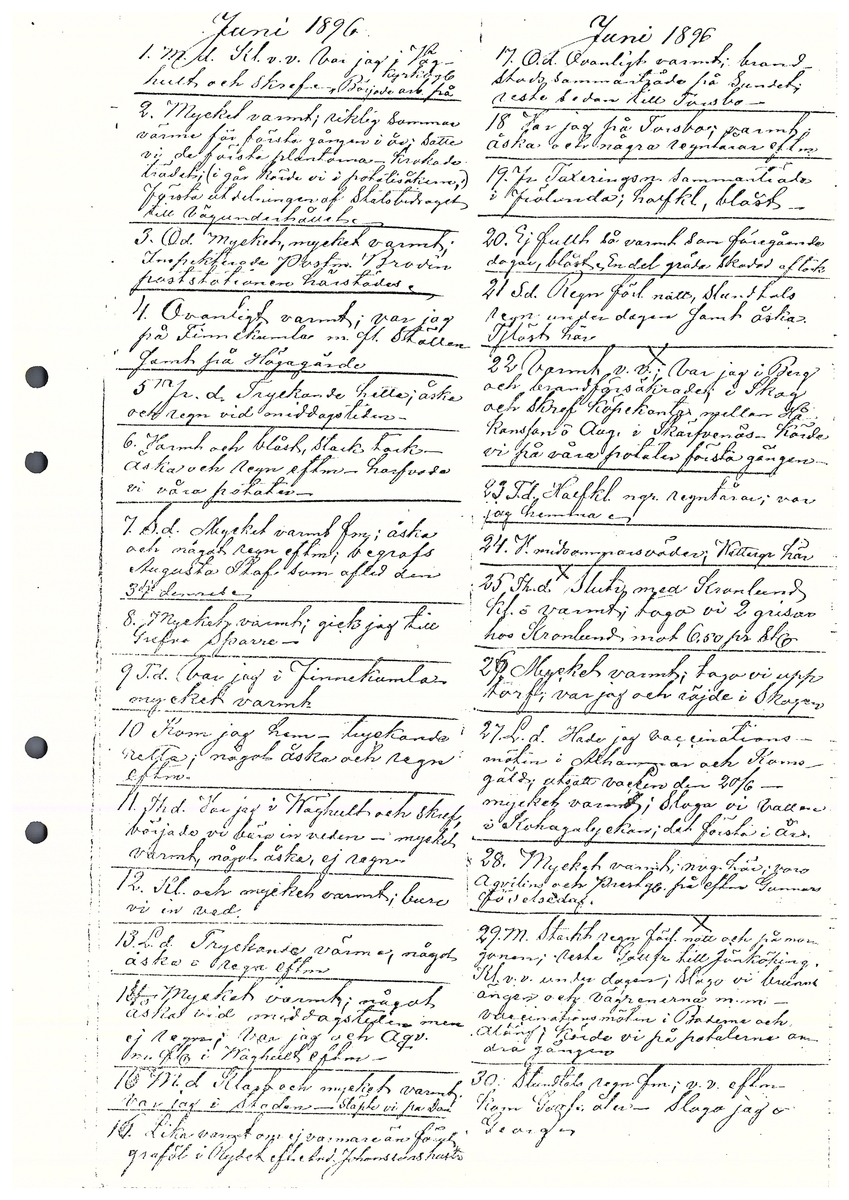 Juni 1896
1. M.d. Kl. v.v. Var jag i Våg-
hult och skref Började arb. på
2. Mycket varmt; riktig sommar
värme för första gången i år; satte
vi de första plantorna
träden; (i går körde vi i potatisåkern)
Första utdelningen af Statsbidraget
till Vägunderhållet
3. Od. Mycket, mycket varmt;
Inspekterade Postm. Brodin
poststationen härstädes
4. Ovanligt varmt; var jag
på Finnekumla m. fl. Ställen
samt på Högagärde
5 Fr. d. Tryckande hetta; åska
och regn vid middagstiden
6. Varmt och blåst, stark torka
åska och regn eftm harfvade
vi våra potatis
7. S.d. Mycket varmt fm; åska
och något regn eftm; begrafs
Augusta Staf som afled den
3dje dennes
8. Mycket varmt; gick jag till
Grefve Sparre
9 T.d. Var jag i Finnekumla
mycket varmt
10 Kom jag hem – tryckande
hetta; något åska och regn
eftm.
11. Th.d. Var jag i Wåghult och skref,
började vi bära in veden – mycket
varmt, något åska, ej regn
12. Kl. och mycket varmt; buro
vi in ved.
13. L.d. Tryckande värme, något
åska o regn eftm
Mycket varmt; något
åska vid middagstiden men
ej regn; var jag och Agv.
m. fl. i Wåghult eftm
M.d Klart och mycket varmt,
var jag i staden
16. Lika varmt om ej varmare än förut;
graföl i Nybet efter Johanssons hustr
Juni 1896
17. O.d. Ovanligt varmt; brand-
stods sammanträde på Sundet;
reste sedan till Torsbo
18 Var jag på Torsbo; varmt
åska och några regntårar eftm
19. Fr Taxeringsn. sammanträde
i Fiölunda; halfkl, blåst
20. Ej fullt så varmt som föregående
dagar, blåst, Endel gräda skadad af torka
21 S.d. Regn förl. natt, stundtals
regn under dagen samt åska.
här
22. Varmt v.v.; var jag i Berg
och brandförsäkrade; i Skog
och skref köpekontr mellan Hå-
kansson o Aug. i Skärfvenäs. Körde
vi på våra potatis första gången
23 T.d. Halfkl ngr regntårar; var
jag hemma
24. V. midsommarsväder; här
25. Th.d. Sluts med Kronlund
Kl. o varmt; togo vi 2 grisar
hos Kronlund mot 6.50 pr st
26 Mycket varmt; togo vi upp
torf; var jag och röjde i Skogen
27. L.d. Hade jag vaccinations-
möten i Alhammar och Koms-
gäld; utsatt vaccen den 20/6
mycket varmt; sloga vi vallen
i Kohagalyckan; det första i År.
28. Mycket varmt; här; voro
Agvilin och Prestg. på eftm Gunnars
födelsedag.
29. M. Starkt regn förl. natt och på mor-
gonen; reste till Jönköping.
Kl. v.v. under dagen; sloga vi brunns
ängen och vägrenerna m.m.
vaccinationsmöten i och
körde vi på potaterna an-
dra gången
30. Stundtals regn fm; v.v. eftm
kom åter – sloga jag o
George